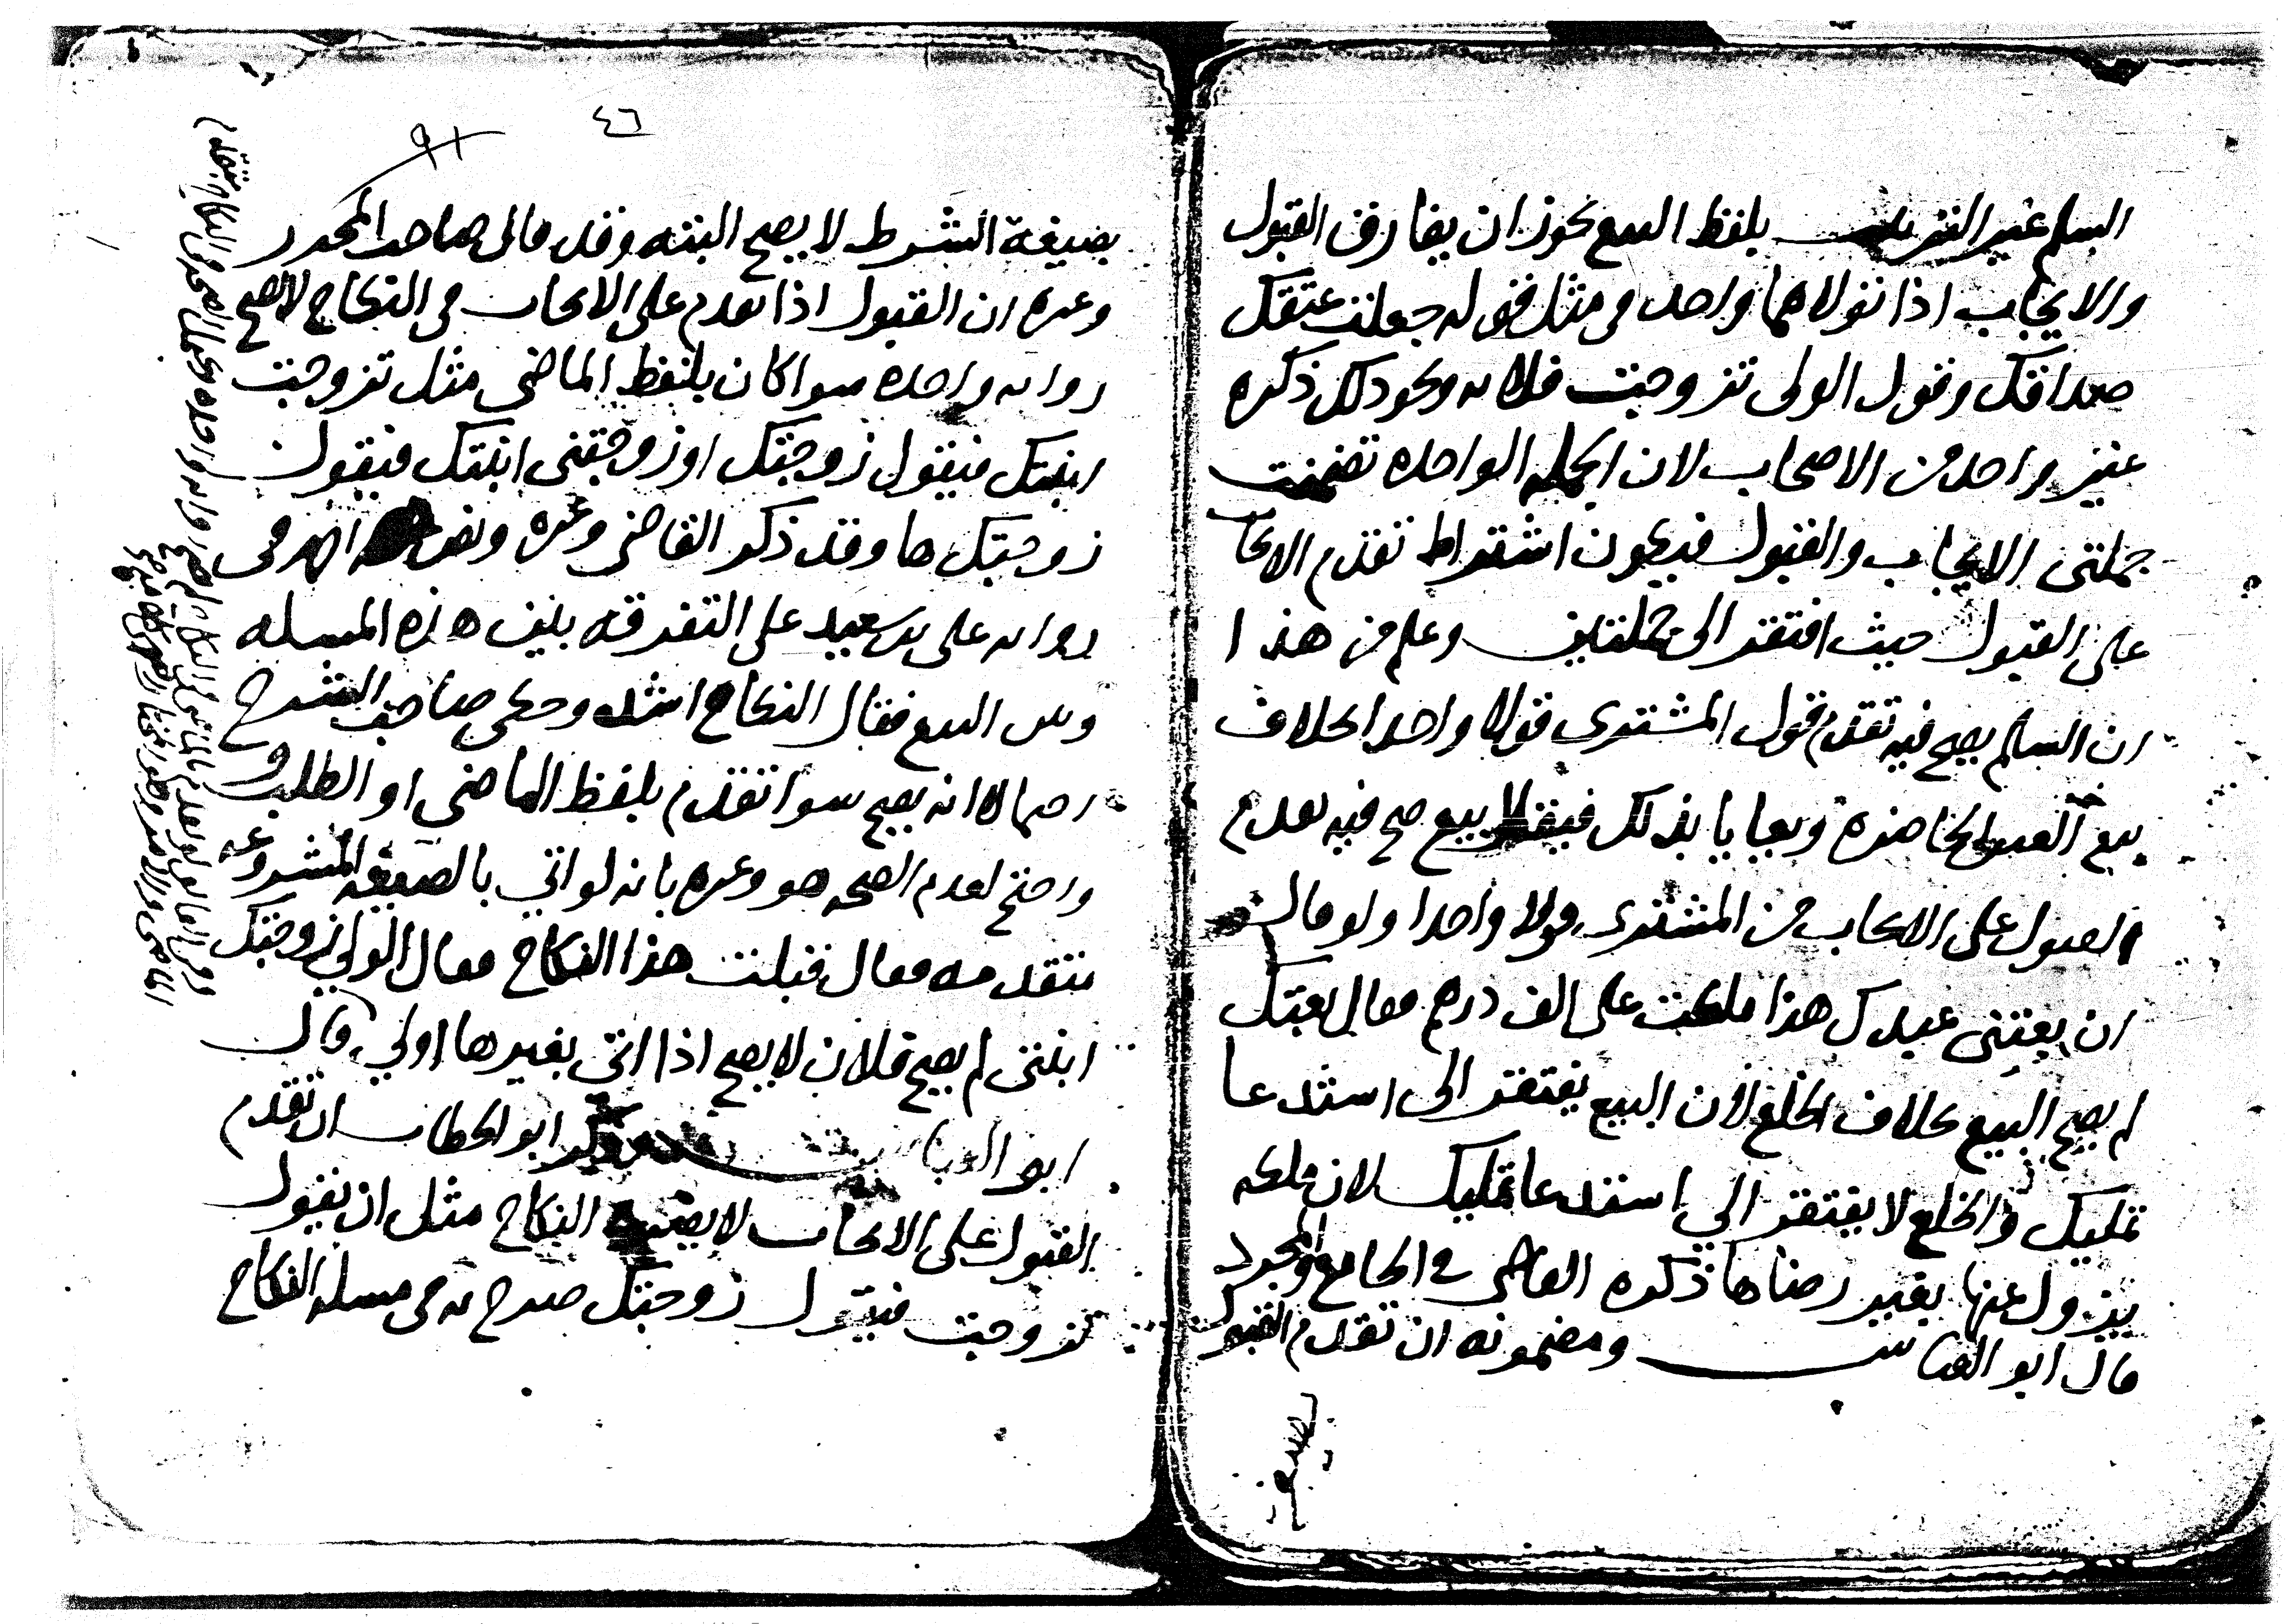 السلم غير بلفظ البيع يحوز ان يفارق القبول
والايجاب اذا تولاهما واحد في مثل قوله جعلت عتقك
صداقك وقول الولي تزوجت فلانه ونحو ذلك ذكره
غير واحد من الاصحاب لان الجمله الواحده تضمنت
جملتي الايجاب والقبول فيكون اشتراط تقدم الايجا
على القبول حيث افتقر الى جملتين وعلم من هذا
ان السلم يصح فيه تقدم قول المشتري قولا واحدا بخلاف
بيع الحاضره وبعايا بذلك فيقال بيع صح فيه تقدم
القبول على الايجاب من المشتري قولا واحدا ولو قال
ان بعتني عبدك هذا فلك علي الف درهم فقال بعتك
لم يصح البيع بخلاف الخلع لان البيع يفتقر الى استدعا
تمليك والخلع لا يفتقر الي استدعا تمليك لان ملكه
يزول عنها بغير رضاها ذكره القاضي في الجامع والمجرد
قال ابو العباس ومضمونه ان تقدم القبول
بصيغة
٤٦
٩١
بصيغة الشرط لا يصح البته وقد قال صاحب المحرر
وغيره ان القبول اذا تقدم على الايجاب في النكاح لا يصح
روايه واحده سوا كان بلفظ الماضي مثل تزوجت
ابنتك فيقول زوجتك او زوجتني ابنتك فيقول
زوجتكها وقد ذكر القاضي وغيره ونص احمد في
روايه علي بن سعيد على التفرقه بين هذه المسله
وبين البيع فقال النكاح اشد وحكى صاحب الشرح
احتمالا انه يصح سوا تقدم بلفظ الماضي او الطلب و
واحتج لعدم الصحه هو وغيره بانه لو اتي بالصيغه المشروعه
متقدمه فقال قبلت هذا النكاح فقال الولي زوجتك
ابنتي لم يصح فلان لا يصح اذا اتى بغيرها اولي قال
ابو العباس ابو الخطاب ان تقدم
القبول على الايجاب لا يصح النكاح مثل ان يقول
تزوجت فيقول زوجتك صرح به في مسله النكاح